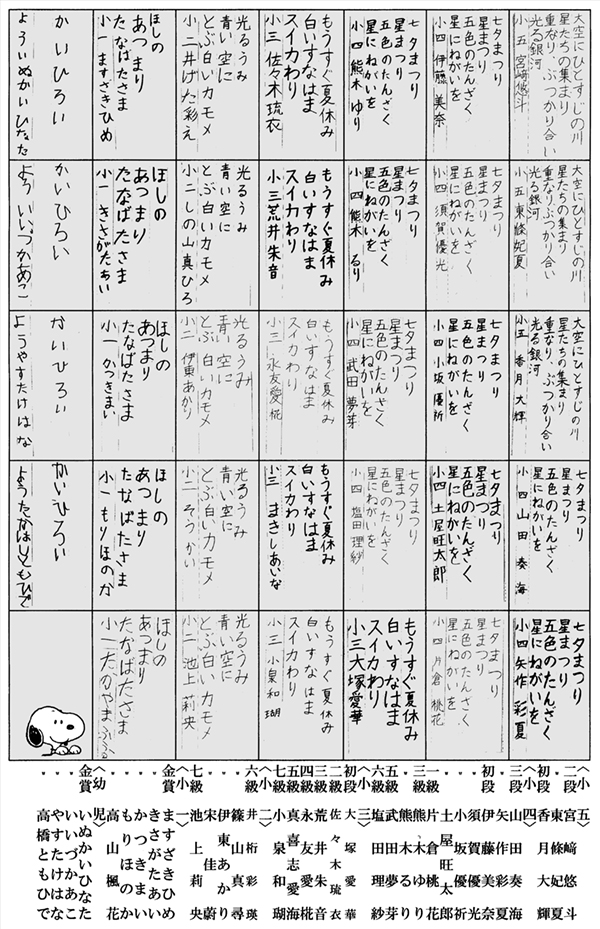 大空にひとすじの川
星たちの集まり
重なり、ぶつかり合い
光る銀河
小五 宮﨑悠斗
七夕まつり
星まつり
五色のたんざく
星にねがいを
小四 伊藤 美奈
七夕まつり
星まつり
五色のたんざく
星にねがいを
小四 熊木 ゆり
もうすぐ夏休み
白いすなはま
スイカわり
小三 佐々木琉衣
光るうみ
青い空に
とぶ白いカモメ
小二井げた彩え
ほしの
あつまり
たなばたさま
小一 ますざきひめ
かいひろい
よういぬかいひなた
大空にひとすじの川
星たちの集まり
重なり、ぶつかり合い
光る銀河
小五 東條妃夏
七夕まつり
星まつり
五色のたんざく
星にねがいを
小四 須賀優光
七夕まつり
星まつり
五色のたんざく
星にねがいを
小四 熊木 るり
もうすぐ夏休み
白いすなはま
スイカわり
小三荒井朱音
光るうみ
青い空に
とぶ白いカモメ
小二しの山真ひろ
ほしの
あつまり
たなばたさま
小一 きさがたあい
かいひろい
よう いいづかあこ
大空にひとすじの川
星たちの集まり
重なり、ぶつかり合い
光る銀河
小五 香月大輝
七夕まつり
星まつり
五色のたんざく
星にねがいを
小四 小坂優祈
七夕まつり
星まつり
五色のたんざく
星にねがいを
小四 武田夢芽
もうすぐ夏休み
白いすなはま
スイカわり
小三 永友愛椛
光るうみ
青い空に
とぶ白いカモメ
小二 伊東あかり
ほしの
あつまり
たなばたさま
小一かつきまい
かいひろい
ようやすたけはな
七夕まつり
星まつり
五色のたんざく
星にねがいを
小四山田奏海
七夕まつり
星まつり
五色のたんざく
星にねがいを
小四 土屋旺太郎
七夕まつり
星まつり
五色のたんざく
星にねがいを
小四 塩田理紗
もうすぐ夏休み
白いすなはま
スイカわり
小三 まきしあいな
光るうみ
青い空に
とぶ白いカモメ
小二 そうかい
ほしの
あつまり
たなばたさま
小一もりほのか
かいひろい
ようたかはしともひで
七夕まつり
星まつり
五色のたんざく
星にねがいを
小四矢作 彩夏
七夕まつり
星まつり
五色のたんざく
星にねがいを
小四片倉桃花
もうすぐ夏休み
白いすなはま
スイカわり
小三大塚愛華
もうすぐ夏休み
白いすなはま
スイカわり
小三 小泉和瑚
光るうみ
青い空に
とぶ白いカモメ
小二 池上莉央
ほしの
あつまり
たなばたさま
小一たかやまふうか
〈小五〉
二段 宮﨑悠斗
初段 東條妃夏
〃 香月大輝
〈小四〉
三段 山田奏海
〃 矢作彩夏
初段 伊藤美奈
〃 須賀優光
〃 小坂優祈
〃 土屋旺太郎
一級 片倉桃花
〃 熊木ゆり
〃 熊木るり
五級 武田夢芽
六級 塩田理紗
〈小三〉
初段 大塚愛華
佐々木琉衣
三級 荒井朱音
四級 永友愛椛
五級 真喜志愛海
七級 小泉和瑚
〈小二〉
六級 井桁彩瑛
〃 篠山真尋
〃 伊東あかり
〃 宋佳蔚
七級 池上莉央
〈小一〉
金賞 ますざきひめ
〃 きさがたあい
〃 かつきまい
〃 もりほのか
〃 高山楓花
〈幼児〉
金賞 いぬかいひなた
〃 いいづかあこ
〃 やすたけはな
〃 高橋ともひで